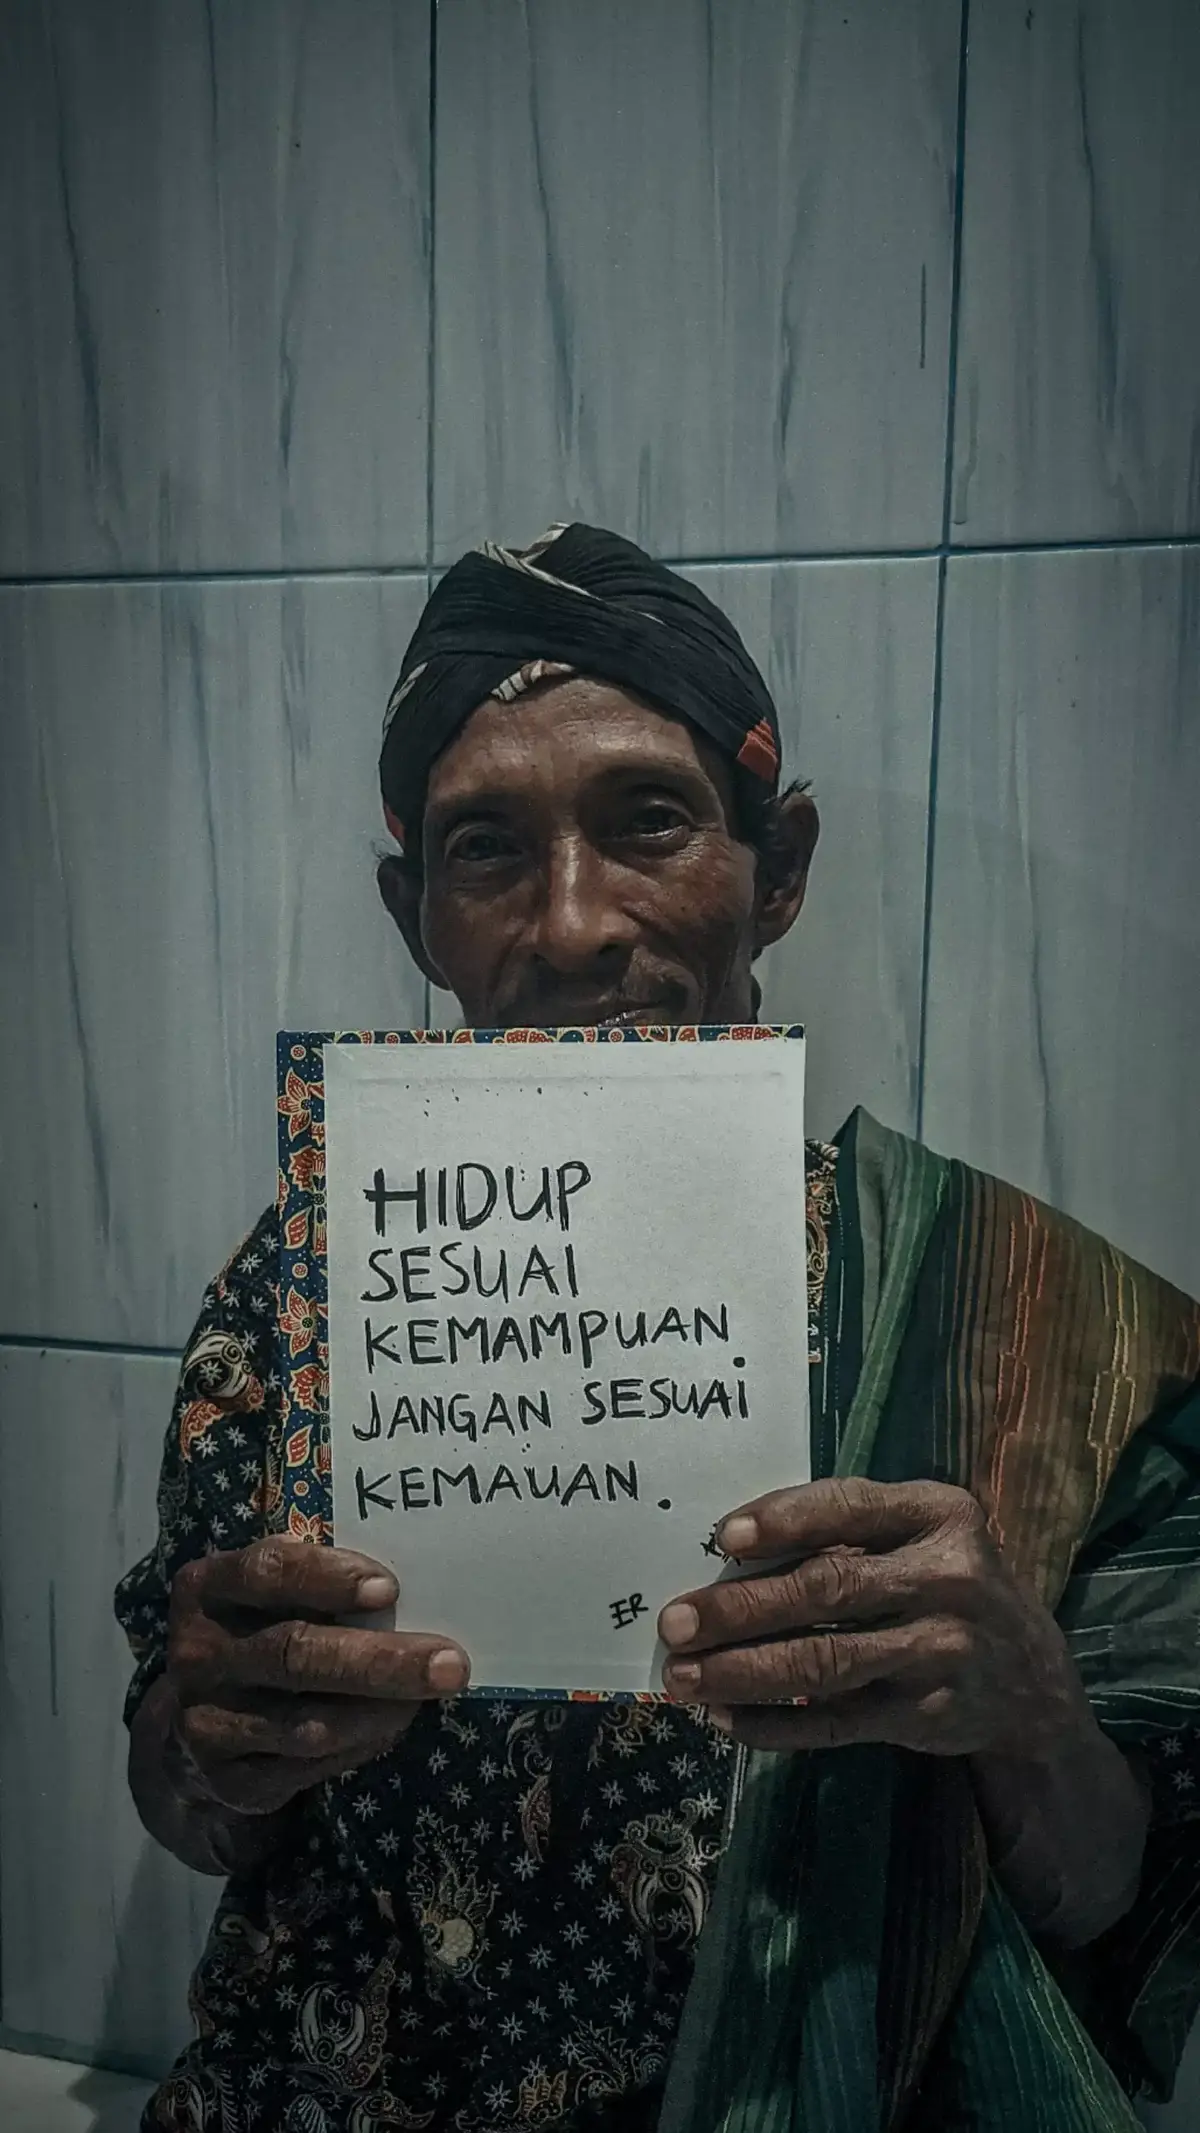 HIDUP
SESUAI
KEMAMPUAN.
JANGAN SESUAI
KEMAUAN.
ER